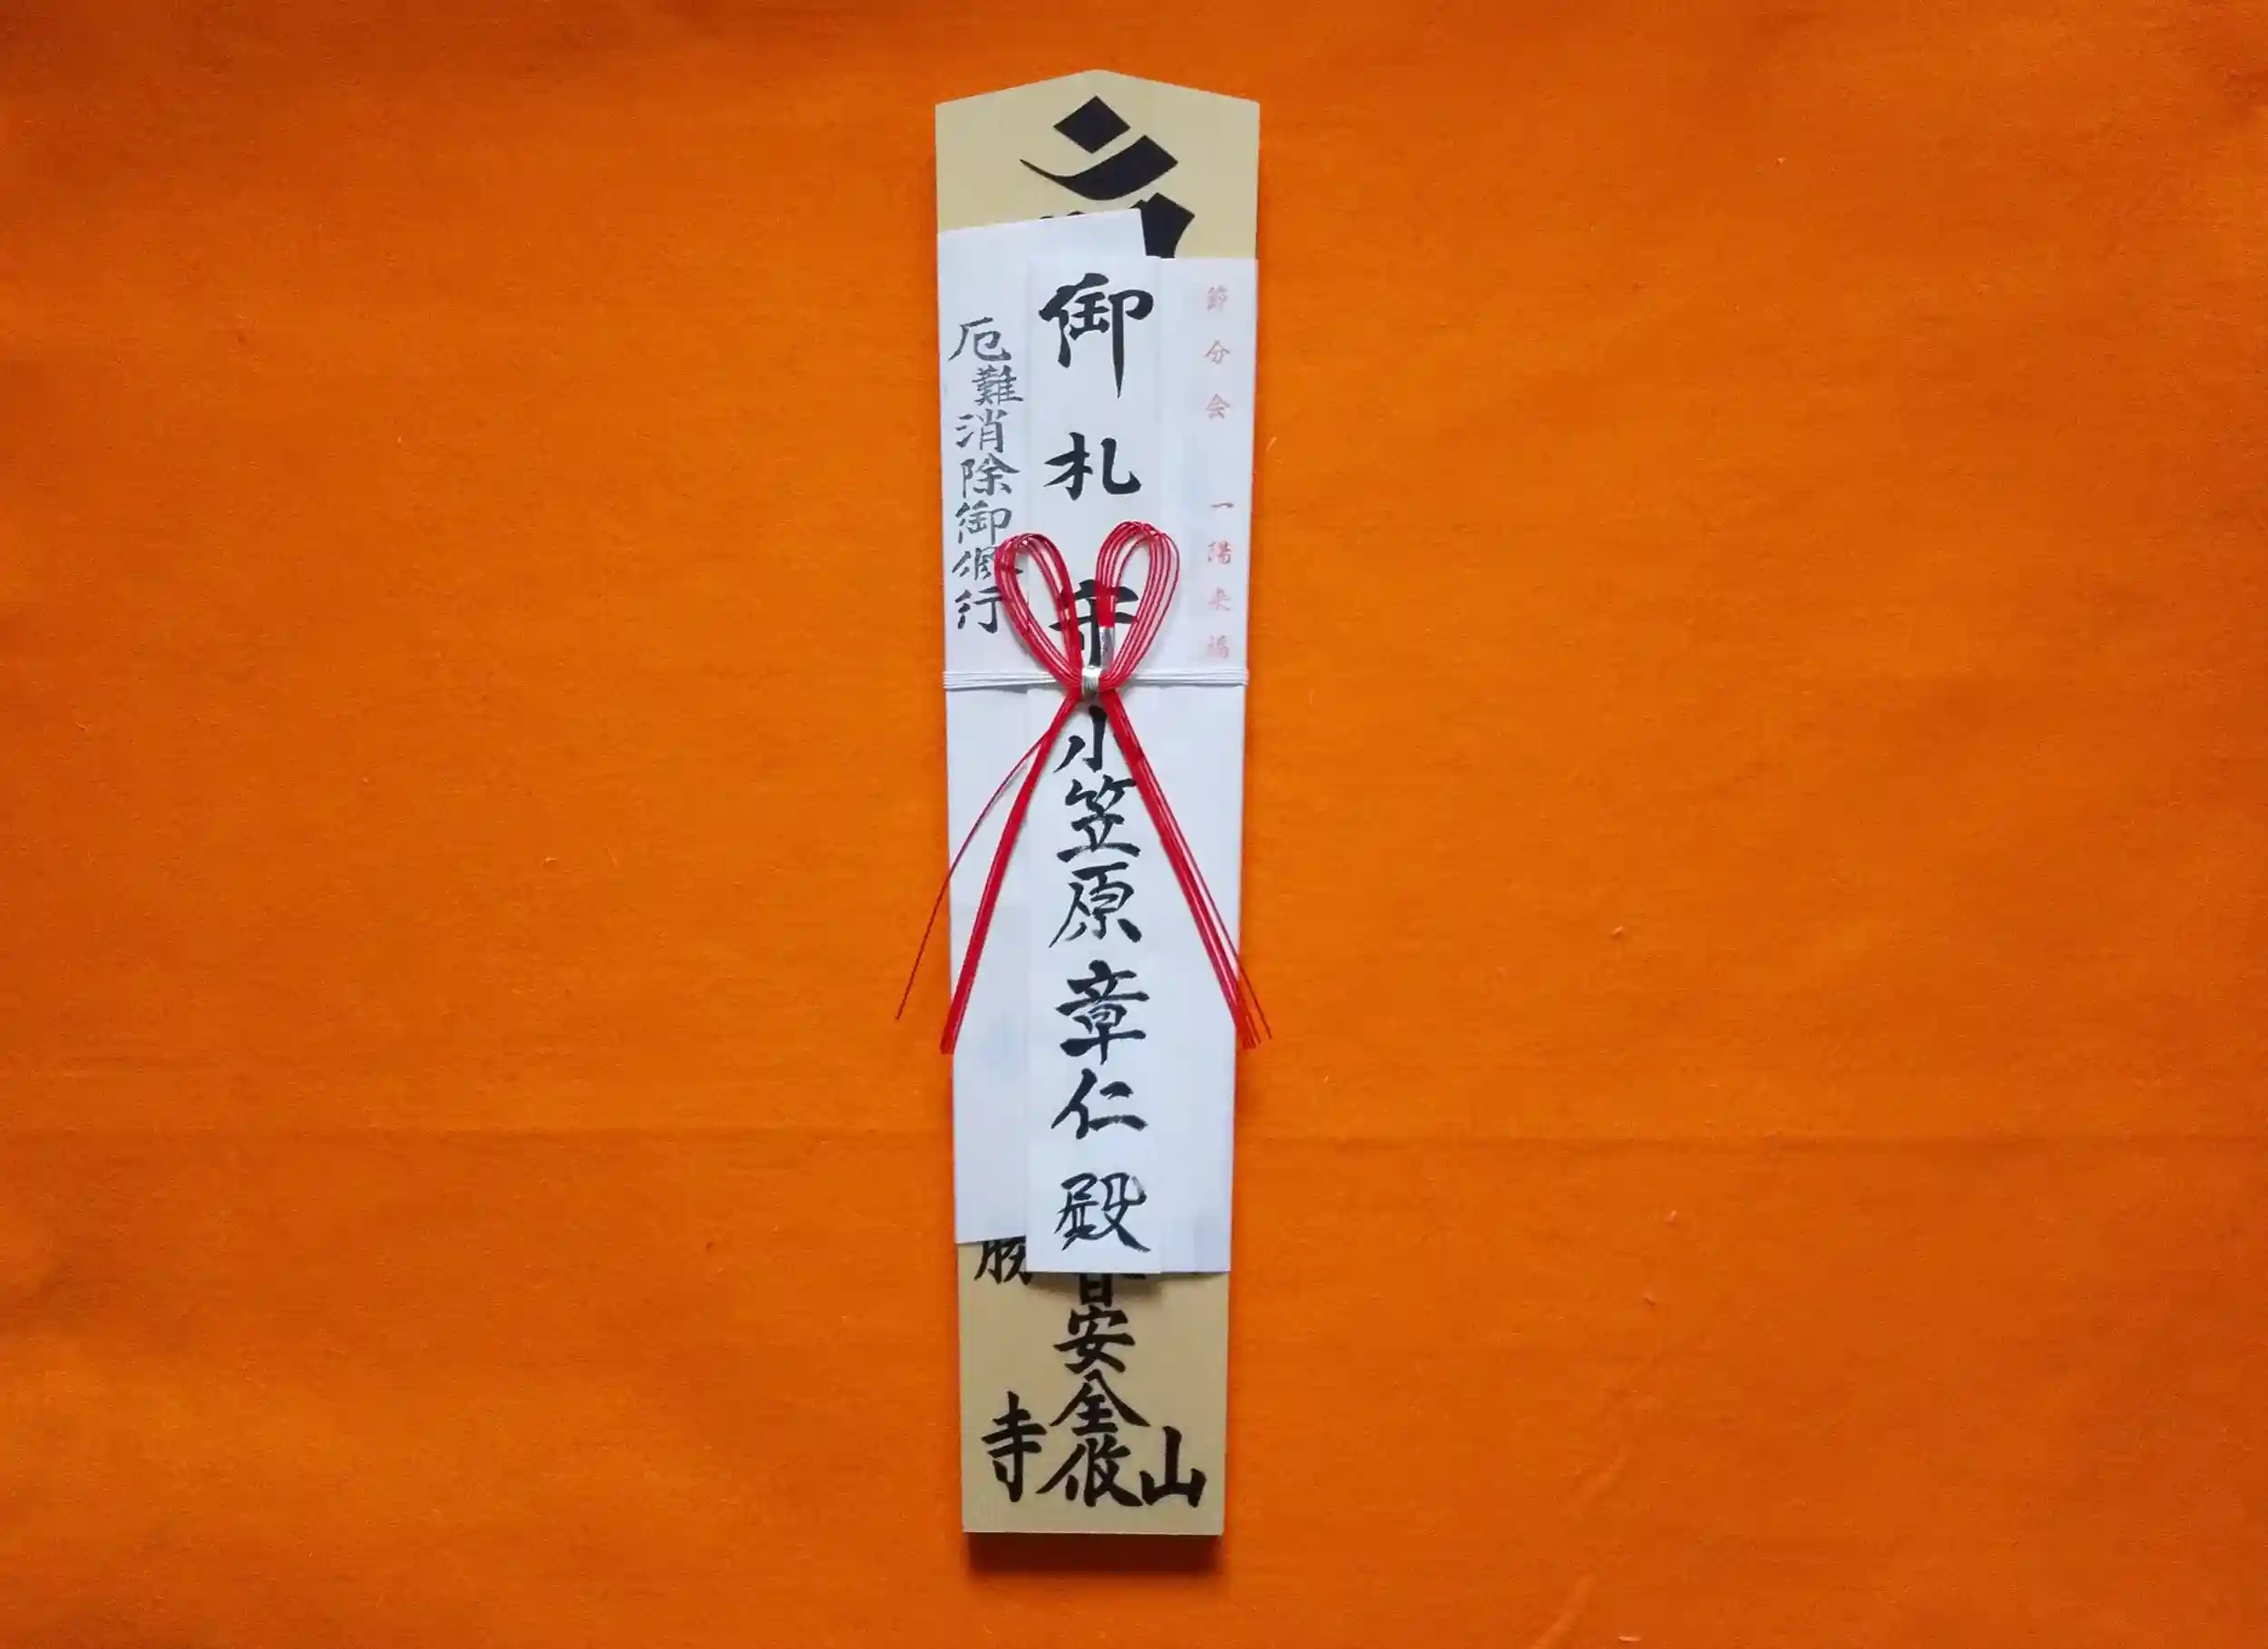 節分会 一陽来福
御札 守
小笠原章仁殿
厄難消除御修行
安全攸
山
寺